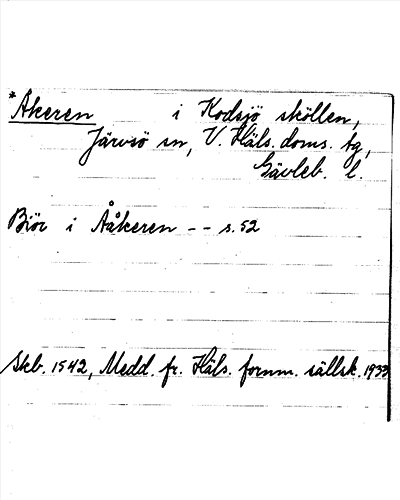 *Åkeren i Kodsjö sköllen,
Järvsö sn, V. Häls. doms. tg,
Gävleb. l.
Biör i Ååkeren -- s. 52
Skb. 1542, Medd. fr. Häls. fornm. sällsk. 1933